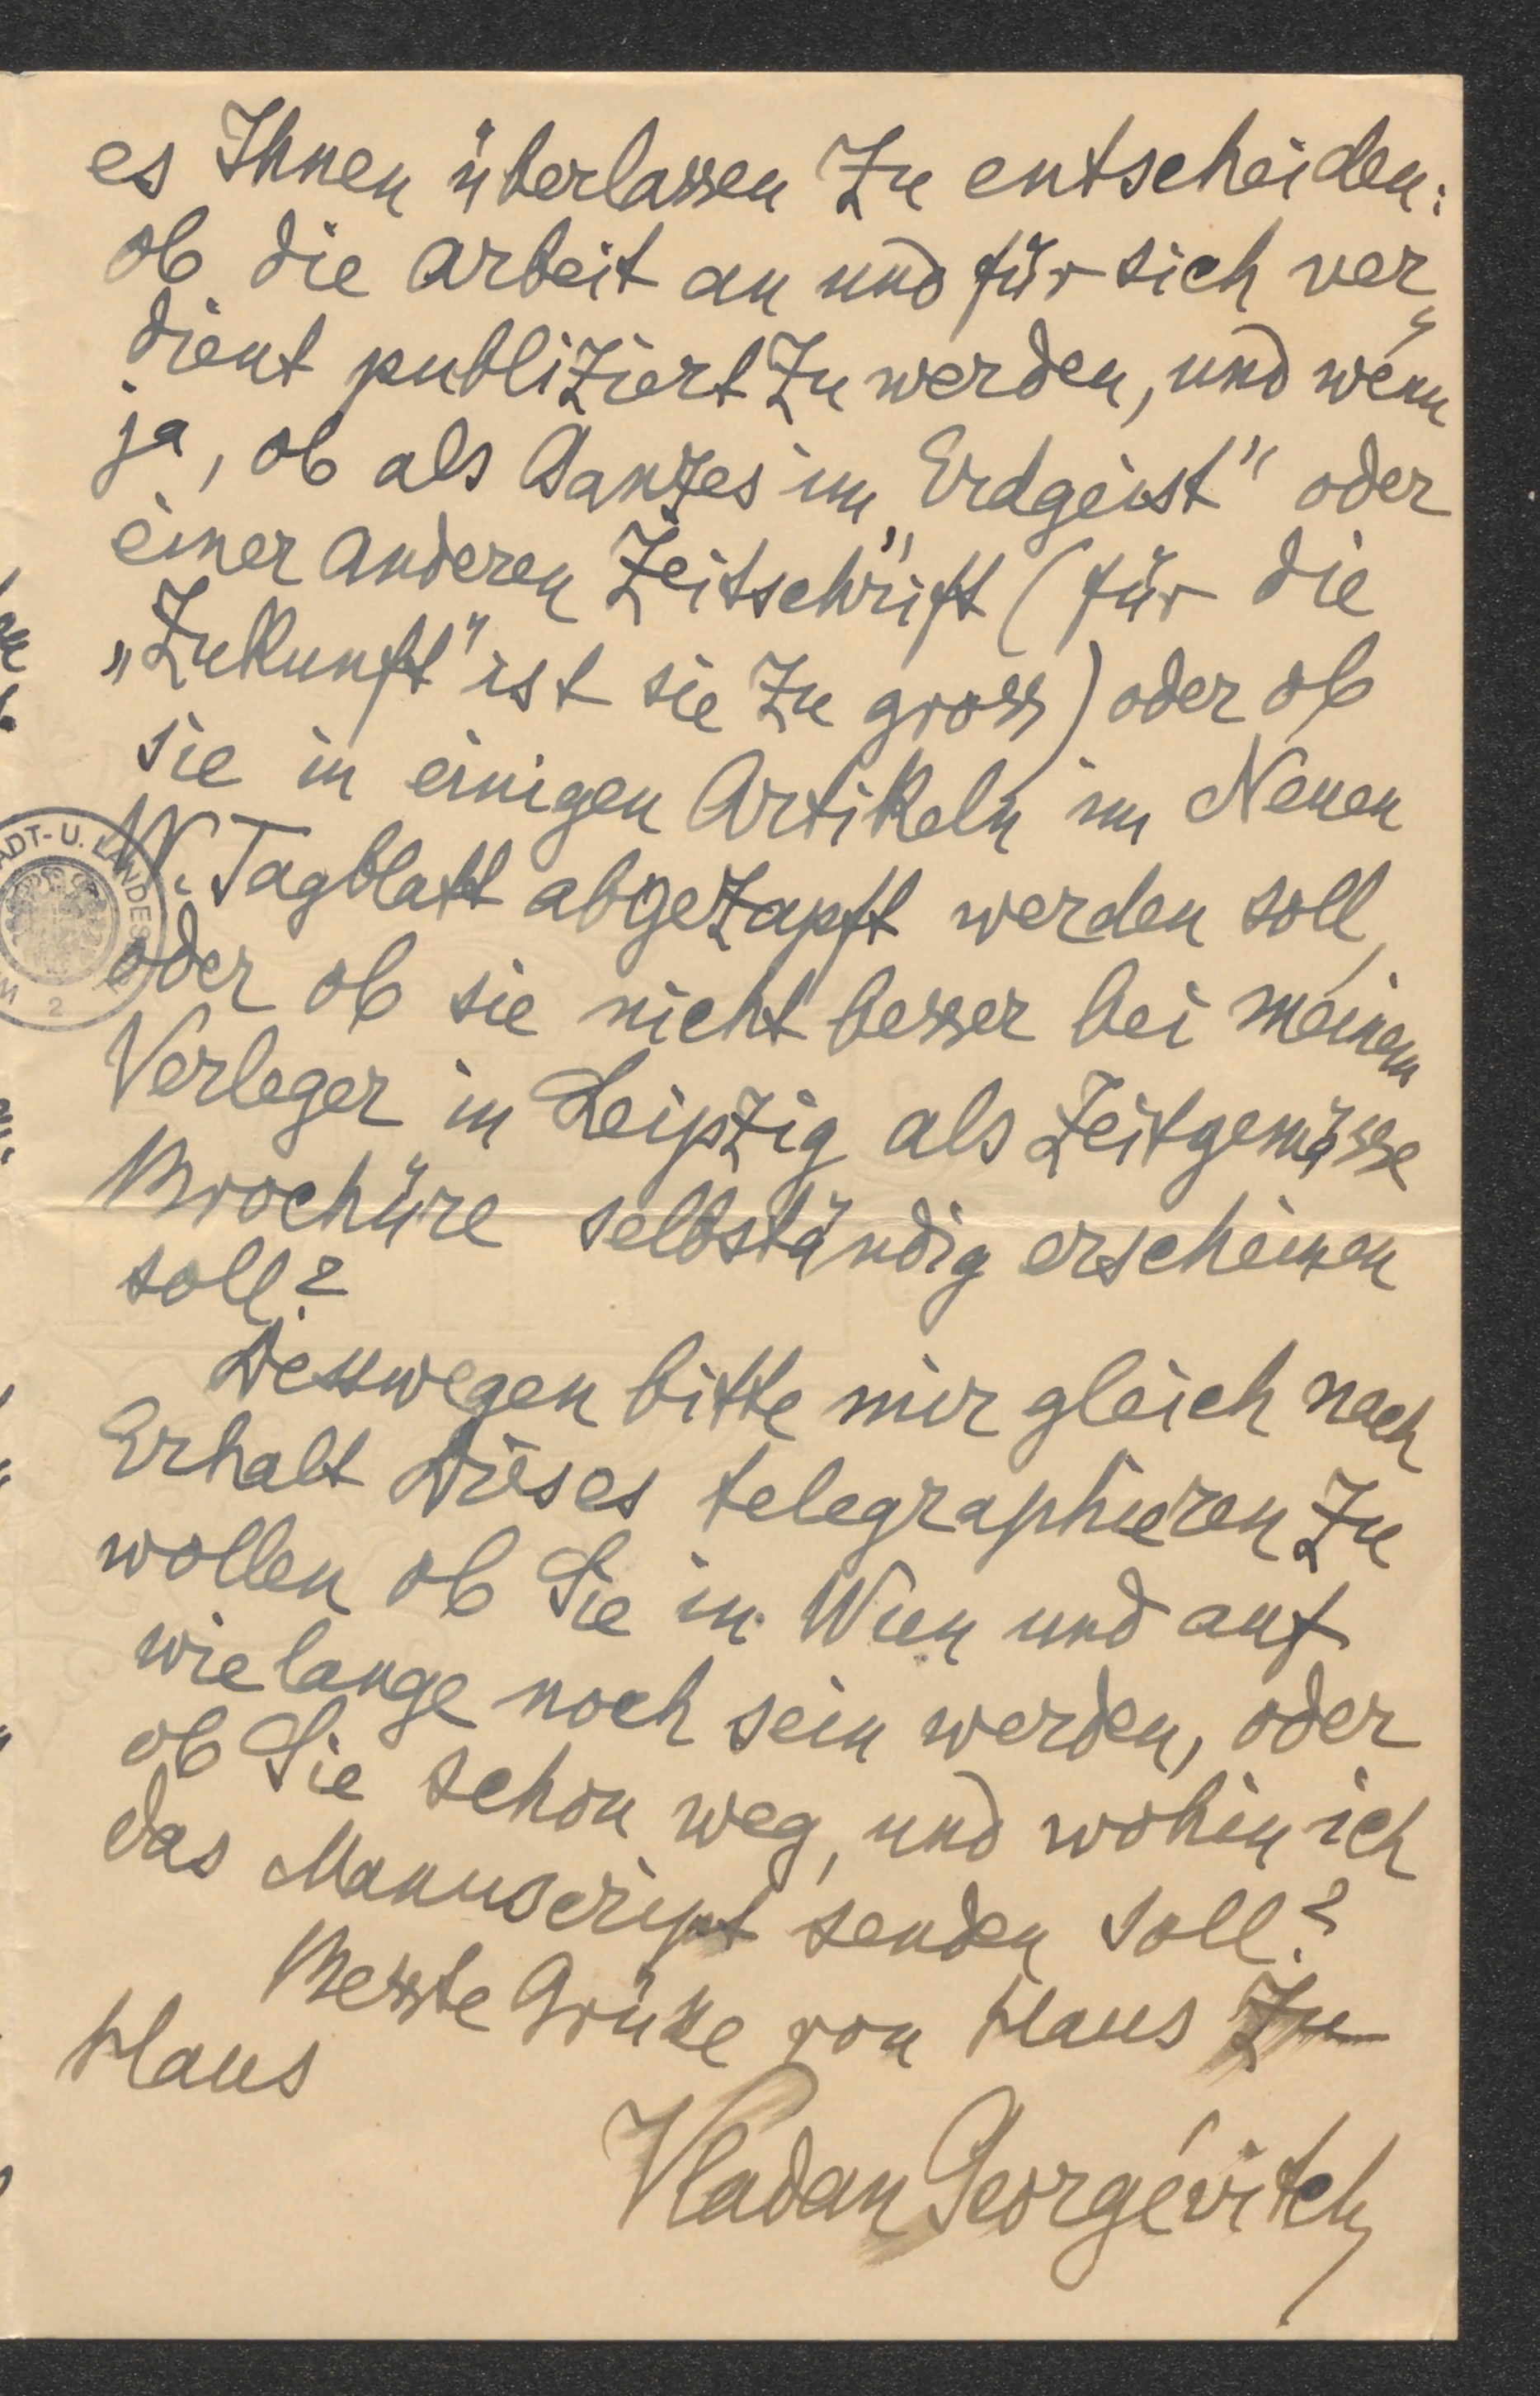 es Ihnen überlassen zu entscheiden:
ob die Arbeit an und für sich ver„
dient publiziert zu werden, und wenn
ja, ob als Ganzes im „Erdgeist" oder
einer anderen Zeitschrift (für die
„Zukunft" ist sie zu gross) oder ob
sie in einigen Artikeln im Neuen
W. Tagblatt abgezapft werden soll,
oder ob sie nicht besser bei meinem
Verleger in Leipzig als zeitgemässe
Brochüre selbständig erscheinen
soll?
Desswegen bitte mir gleich nach
Erhalt Dieses telegraphieren zu
wollen ob Sie in Wien und auf
wie lange noch sein werden, oder
ob Sie schon weg, und wohin ich
das Manuscript senden soll?
Besste Grüße von Haus zu
Haus
Vladan Georgévitch
ADT- U. LANDES
2